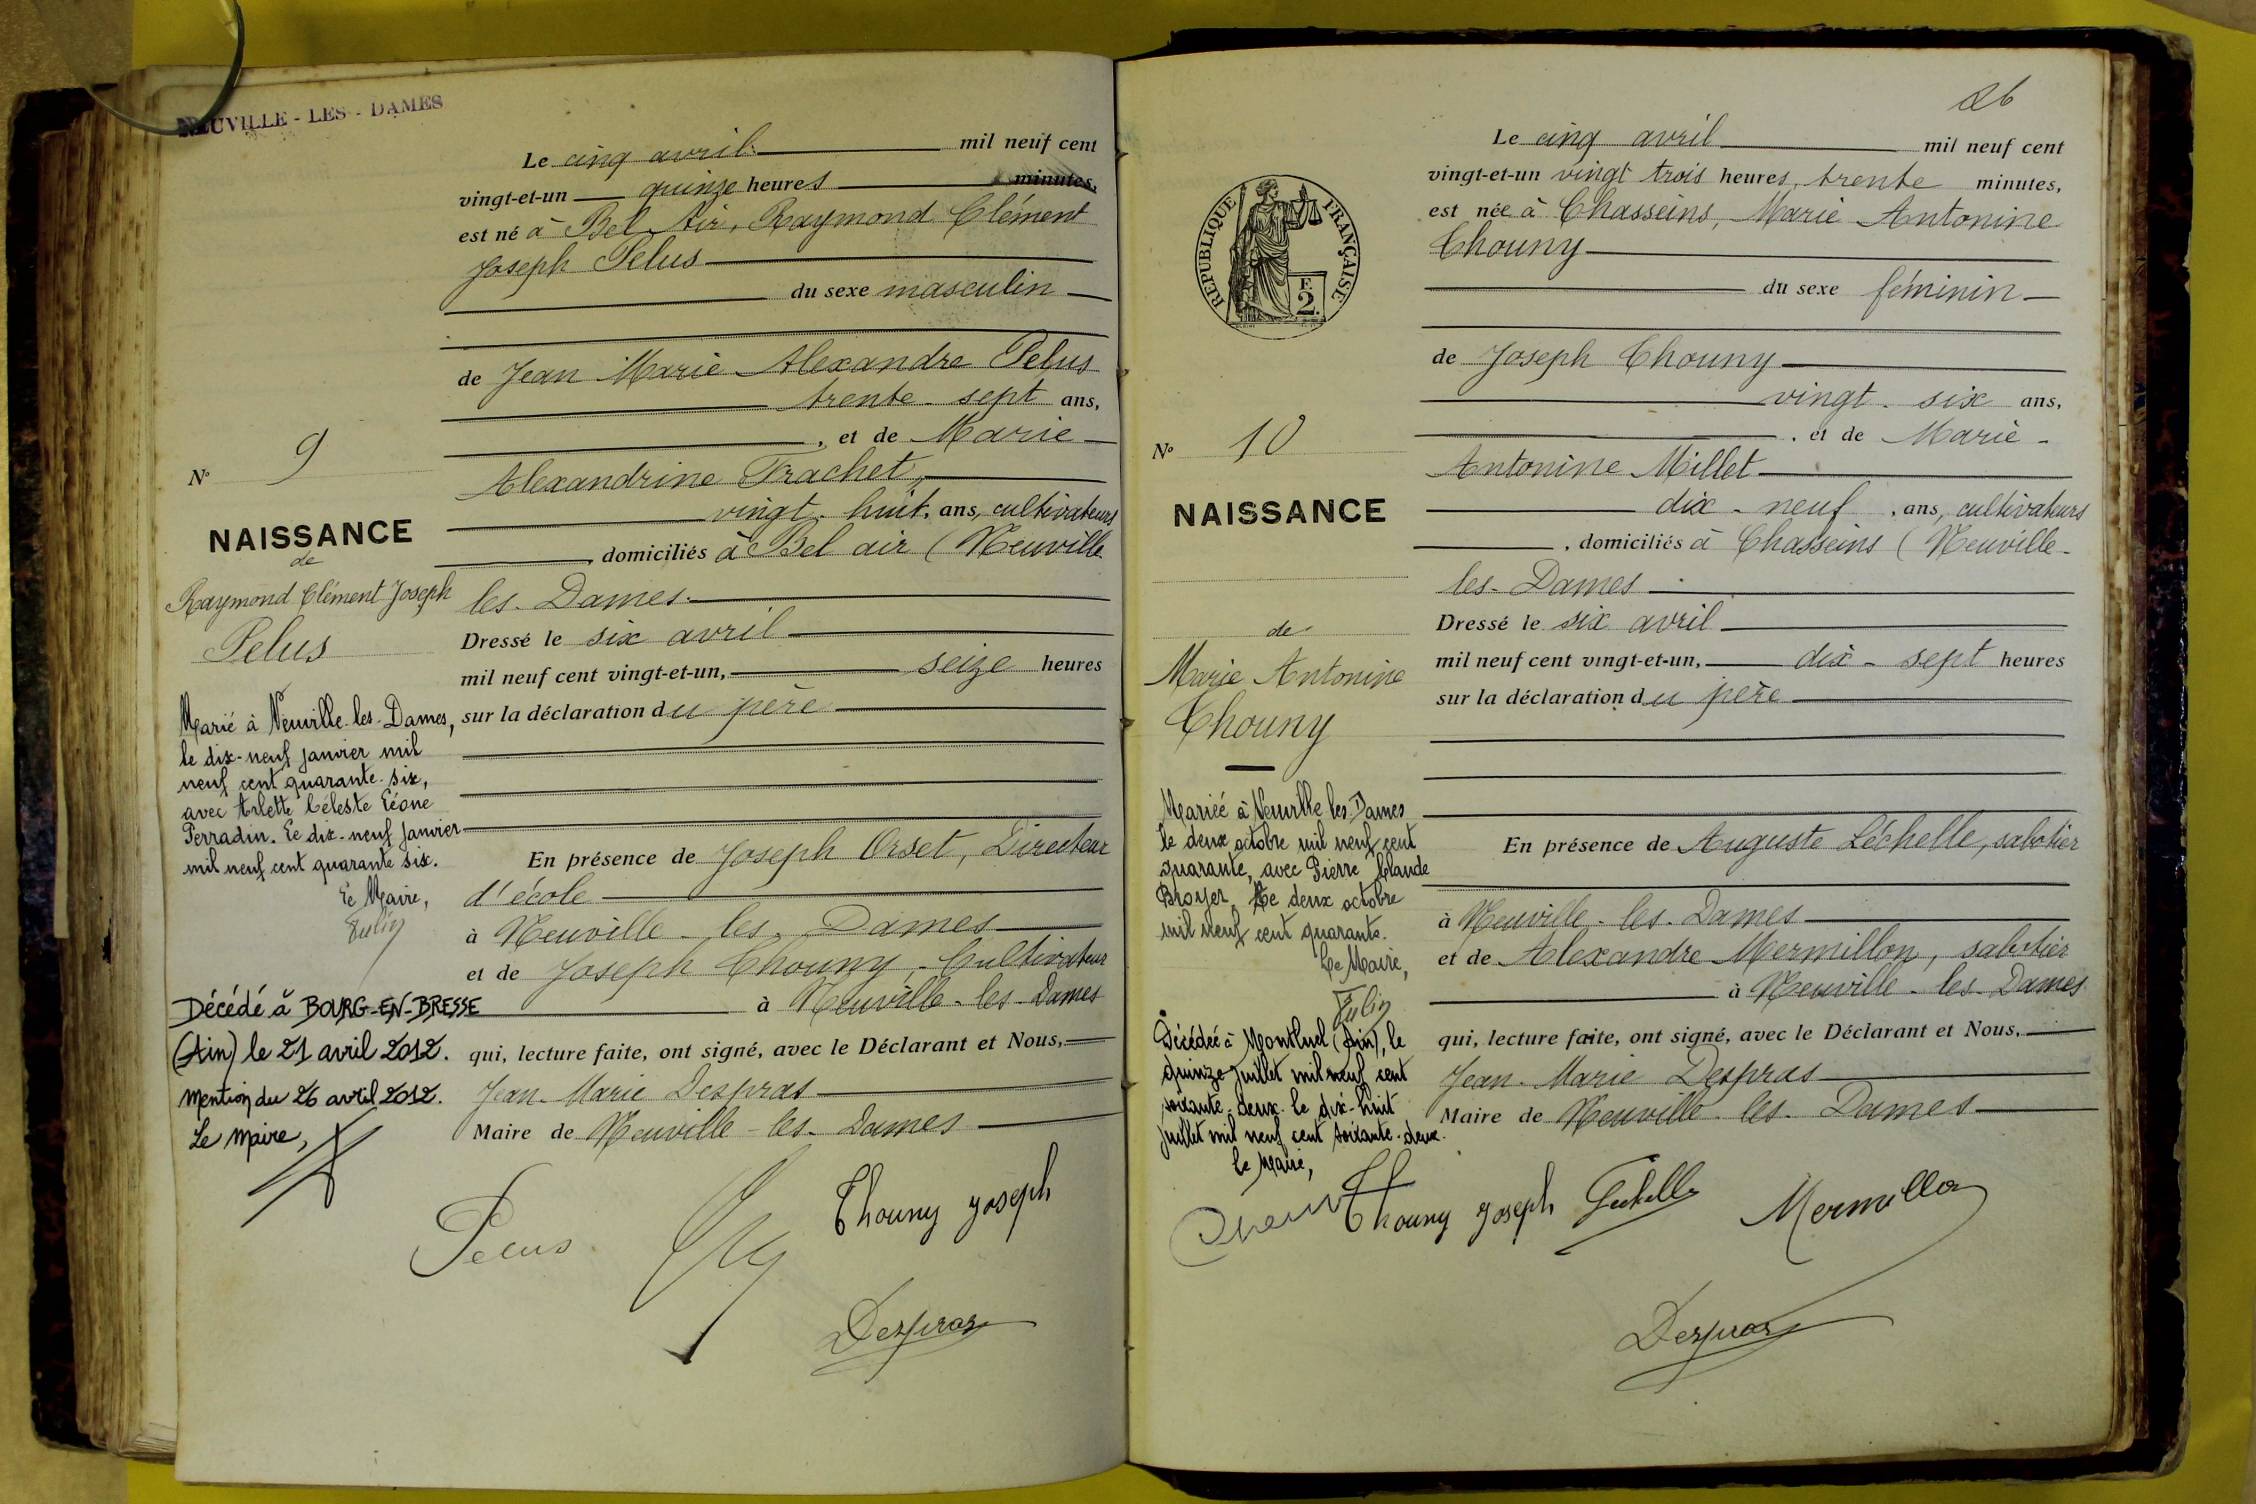 NEUVILLE - LES - DAMES
Le cinq avril mil neuf cent
vingt-et-un quinze heures minutes,
est né à Bel Air, Raymond Clément
Joseph Pelus
du sexe masculin
de Jean Marie Alexandre Pelus
trente-sept ans,
, et de Marie
Alexandrine Trachet,
vingt-huit, ans, cultivateurs
, domiciliés à Bel air (Neuville
les-Dames.
Dressé le six avril
mil neuf cent vingt-et-un, seize heures
sur la déclaration du père
En présence de Joseph Orset, Directeur
d'école
à Neuville-les-Dames
et de Joseph Chouny, Cultivateur
à Neuville-les-Dames
qui, lecture faite, ont signé, avec le Déclarant et Nous,
Jean-Marie Despras
Maire de Neuville-les-Dames
N° 9
NAISSANCE
de
Raymond Clément Joseph
Pelus
Marié à Neuville-les-Dames,
le dix-neuf janvier mil
neuf cent quarante-six,
avec Arlette Céleste Léone
Perradin. Le dix-neuf janvier
mil neuf cent quarante six.
Le Maire,
Décédé à BOURG-EN-BRESSE
(Ain) le 21 avril 2012.
Mention du 26 avril 2012.
Le Maire,
Pelus
Chouny Joseph
Despras
26
Le cinq avril mil neuf cent
vingt-et-un vingt trois heures, trente minutes,
est née à Chasseins, Marie Antonine
Chouny
du sexe féminin
de Joseph Chouny
vingt-six ans,
, et de Marie-
Antonine Millet
dix-neuf, ans, cultivateurs
, domiciliés à Chasseins (Neuville-
les-Dames
Dressé le six avril
mil neuf cent vingt-et-un, dix-sept heures
sur la déclaration du père
En présence de Auguste Léchelle, sabotier
à Neuville-les-Dames
et de Alexandre Mermillon, sabotier
à Neuville-les-Dames
qui, lecture faite, ont signé, avec le Déclarant et Nous,
Jean-Marie Despras
Maire de Neuville-les-Dames
RÉPUBLIQUE FRANÇAISE
F.
2.
N° 10
NAISSANCE
de
Marie Antonine
Chouny
Mariée à Neuville-les-Dames
le deux octobre mil neuf cent
quarante, avec Pierre Claude
Broyer. Le deux octobre
mil neuf cent quarante.
Le Maire,
Décédée à Montluel (Ain), le
quinze juillet mil neuf cent
soixante-deux. le dix-huit
juillet mil neuf cent soixante-deux.
Le Maire,
Chouny Joseph Léchelle Mermillon
Despras